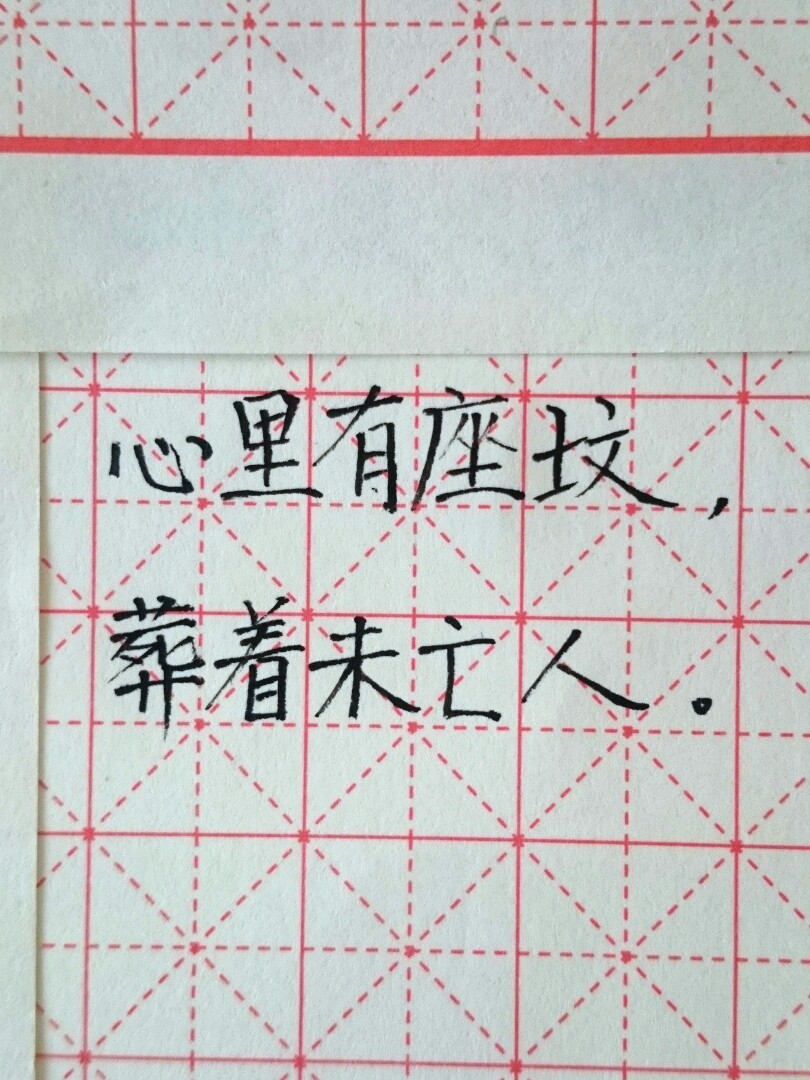 心里有座坟，
葬着未亡人。